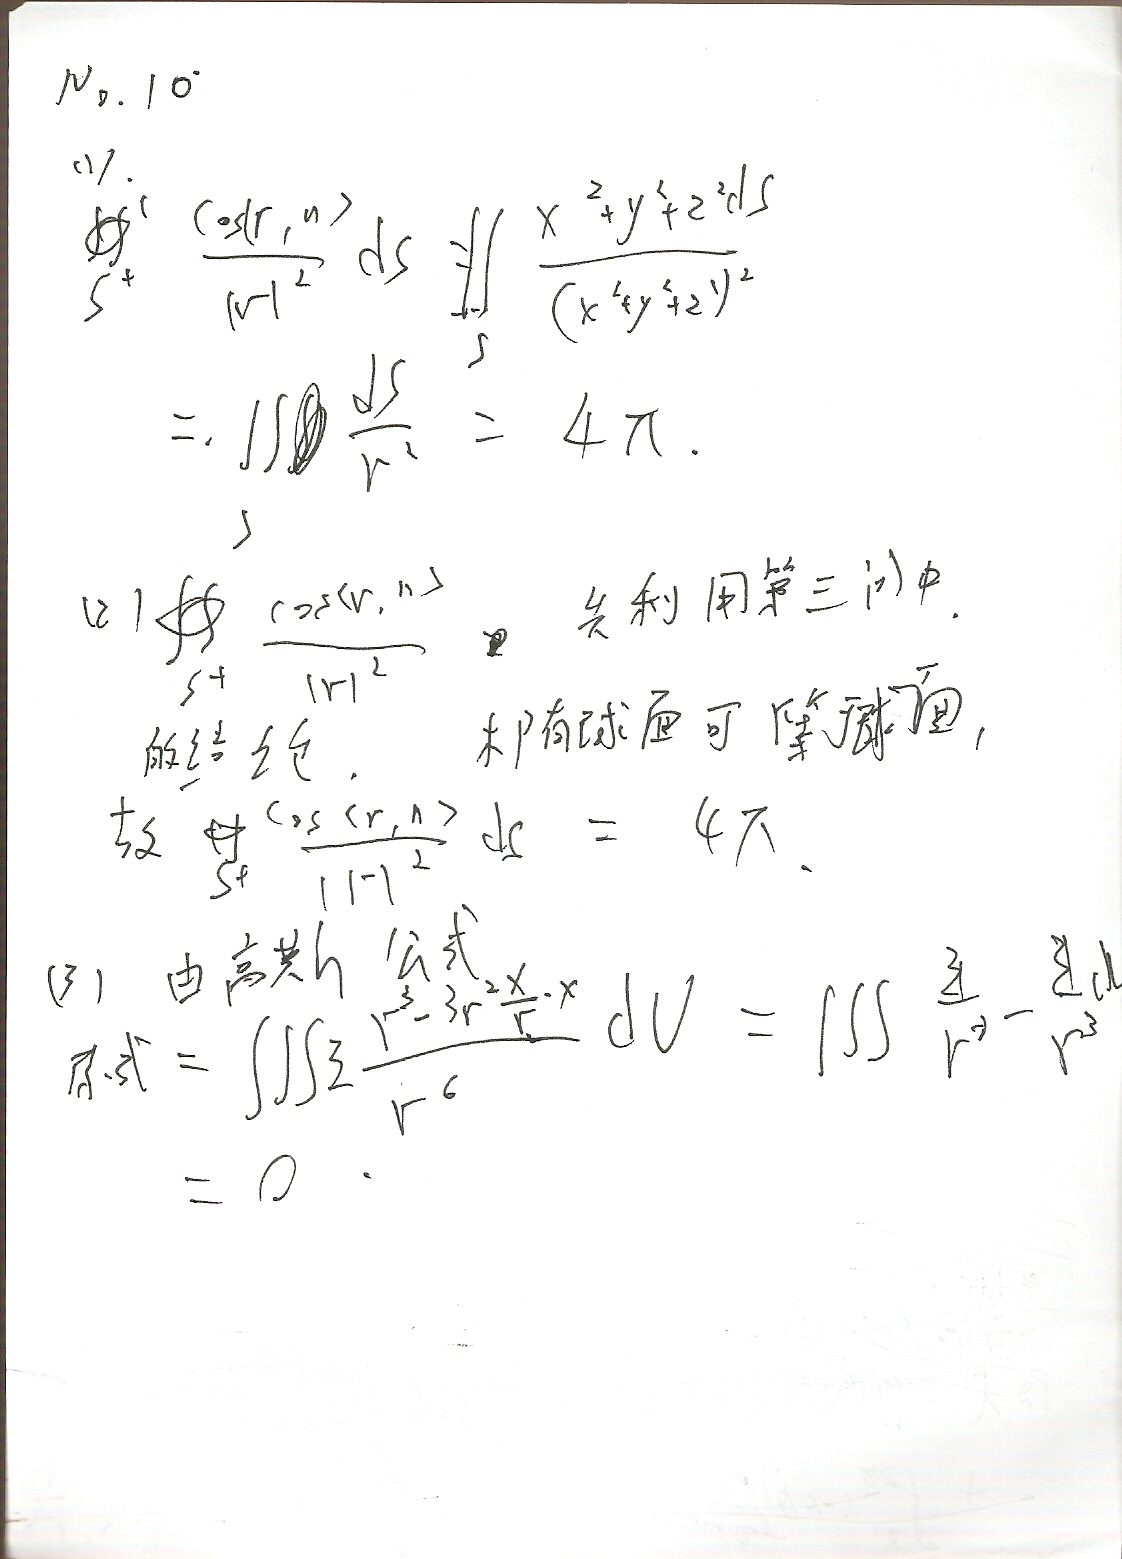 No. 10
(1).
∯_{S+} cos(r,n>/|r|² ds = ∬_S x²+y²+z² ds/(x²+y²+z²)²
= ∬_S ds/r² = 4π.
(2) ∯_{S+} cos<r,n>/|r|² 先利用第三问中.
的结论. 球面可 球面,
故 ∯_{S+} cos<r,n>/|r|² ds = 4π.
(3) 由高其h公式
原式 = ∭Σ (r³-3r² x/r·x)/r⁶ dV = ∭ 3/r³ - 3/r³ d
= 0.